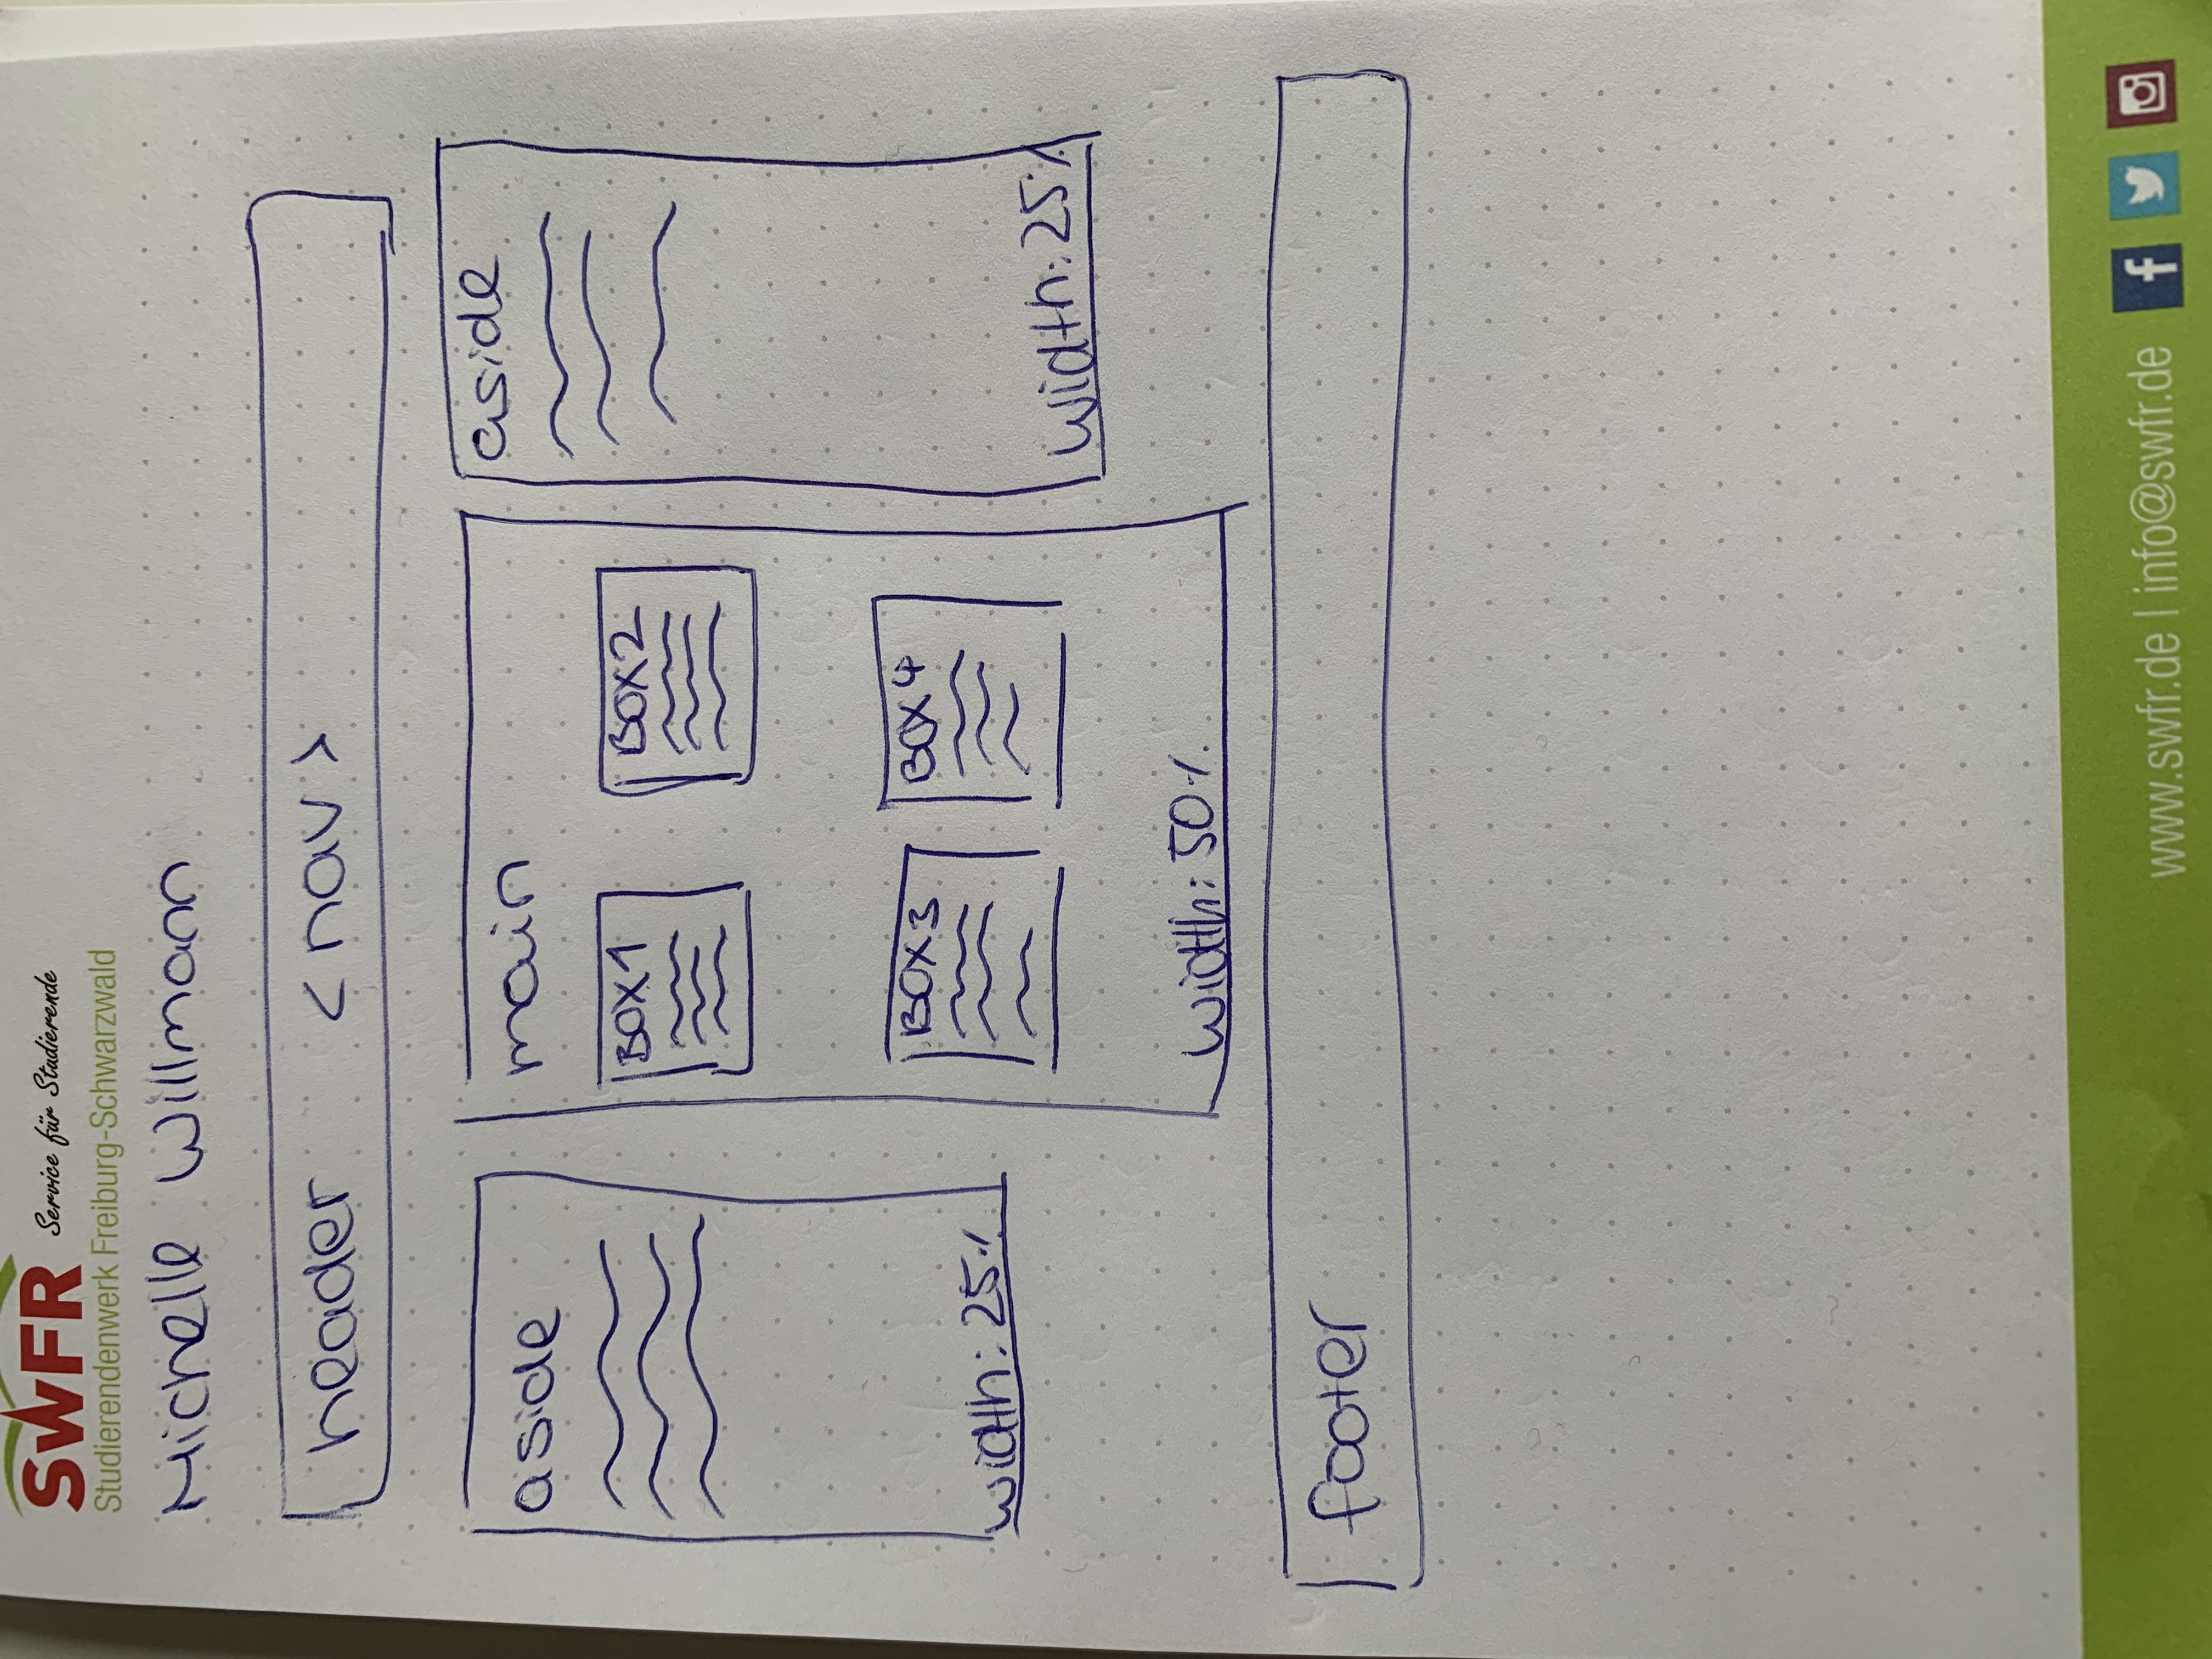 SWFR Service für Studierende
Studierendenwerk Freiburg-Schwarzwald
Michelle Willmann
header <nav>
aside
width: 25%
main
BOX1
BOX2
BOX3
BOX4
width: 50%
aside
width: 25%
footer
www.swfr.de | info@swfr.de